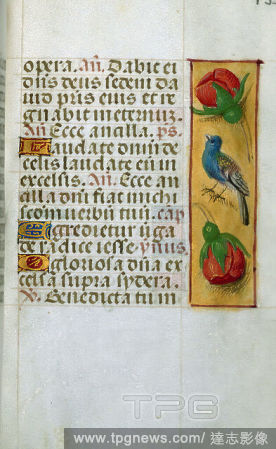 opera. an̄. Dabit ei
dn̄s deus sedem da
uid pris eius et re
gnabit
an̄. Ecce ancilla. ps.
Laudate dn̄m de
celis laudate eū in
excelsis. an̄. Ecce an
cilla dn̄i fiat michi
scdm uerbū tuū. cap
Egredietur uirga
de radice iesse. ymnus.
O gloriosa dn̄a ex
celsa supra sydera.
v. Benedicta tu in
TPG
www.tpgnews.com/ 達志影像